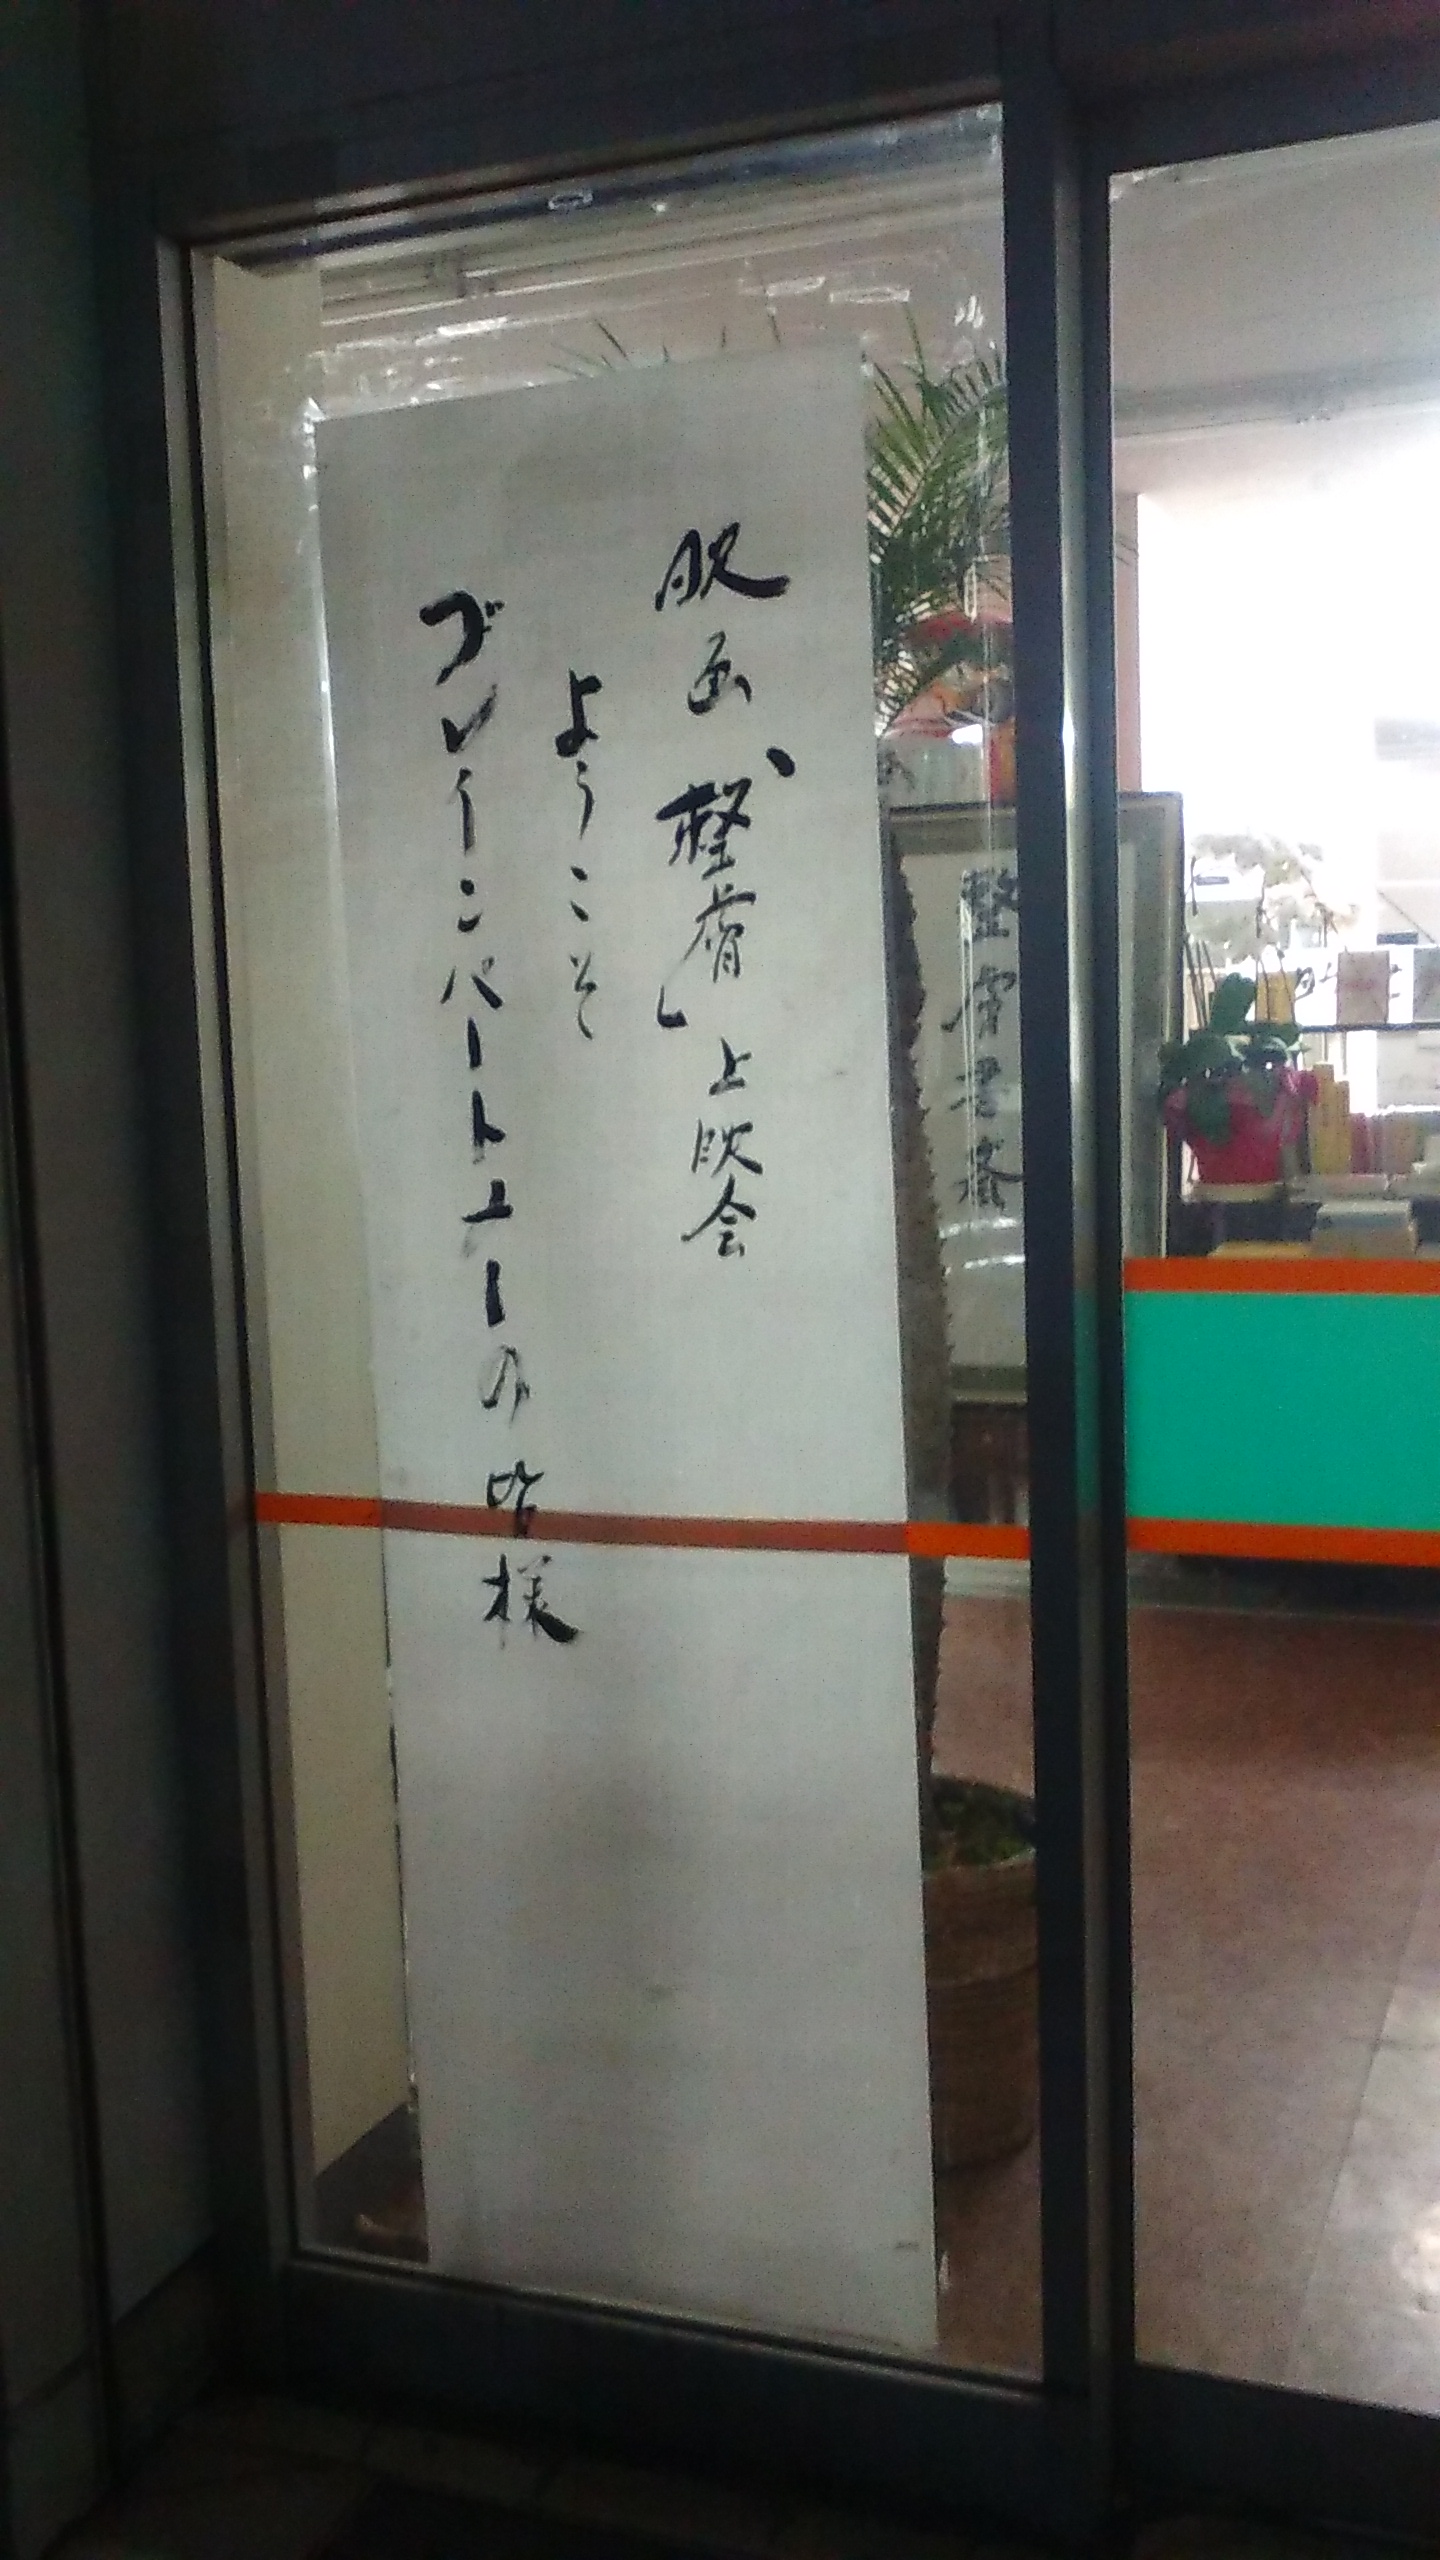 映画「整膚」上映会
ようこそ
ブレインパートナーの皆様
整膚